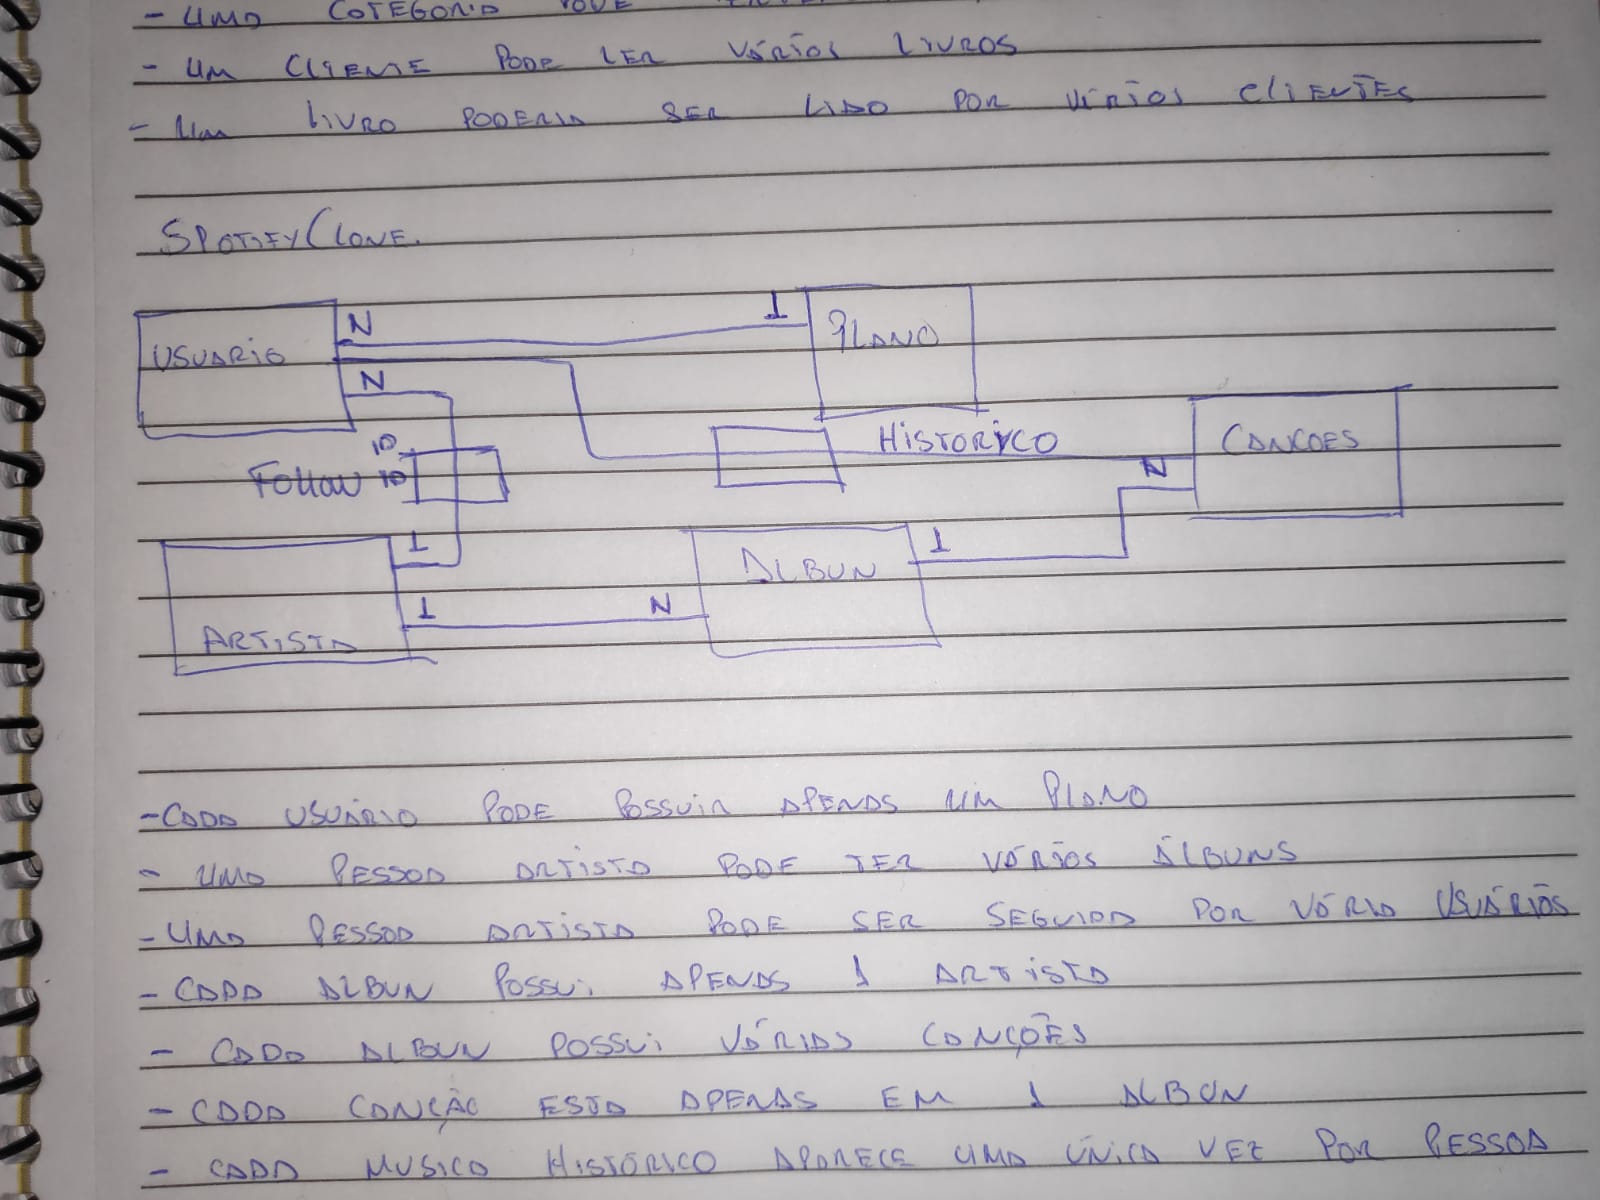 - UMA CATEGORIA PODE
- UM CLIENTE PODE LER VÁRIOS LIVROS
- UM LIVRO PODERIA SER LIDO POR VÁRIOS CLIENTES
SPOTIFYCLONE.
USUARIO N 1 PLANO
N
HISTORICO CANCOES
ID
FOLLOW ID N
1 ALBUN 1
ARTISTA 1 N
- CADA USUÁRIO PODE POSSUIR APENAS UM PLANO
- UMA PESSOA ARTISTA PODE TER VÁRIOS ÁLBUNS
- UMA PESSOA ARTISTA PODE SER SEGUIDA POR VÁRIA USUÁRIOS
- CADA ALBUN POSSUI APENAS 1 ARTISTA
- CADA ALBUN POSSUI VÁRIAS CANÇÕES
- CADA CANÇÃO ESTA APENAS EM 1 ALBUN
- CADA MUSICA HISTÓRICO APARECE UMA ÚNICA VEZ POR PESSOA